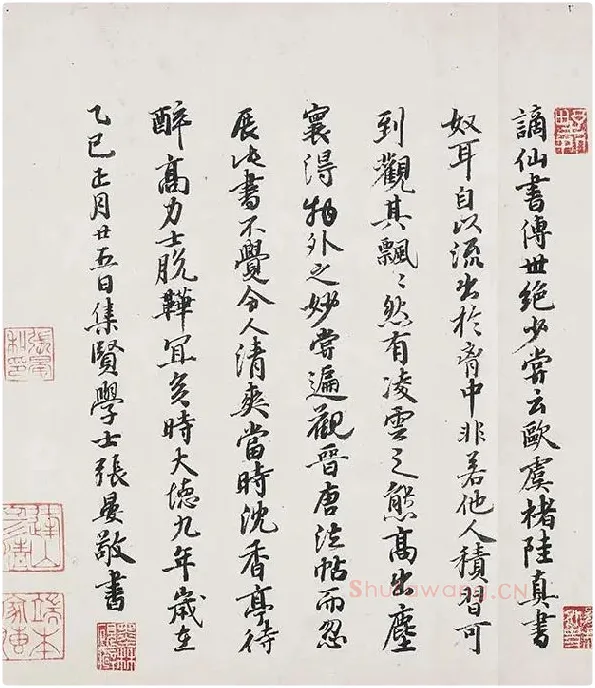 謫仙書傳世絶少嘗云歐虞褚陸真書
奴耳自以流出於胷中非若他人積習可
到觀其飄〻然有凌雲之態髙出塵
寰得物外之妙嘗遍觀晉唐法帖而忽
展此書不覺令人清爽當時沈香亭待
醉髙力士脱鞾冝矣時大德九年歲在
乙巳正月廿五日集賢學士張晏敬書
張晏私印
端本家傳
Shufawang.CN